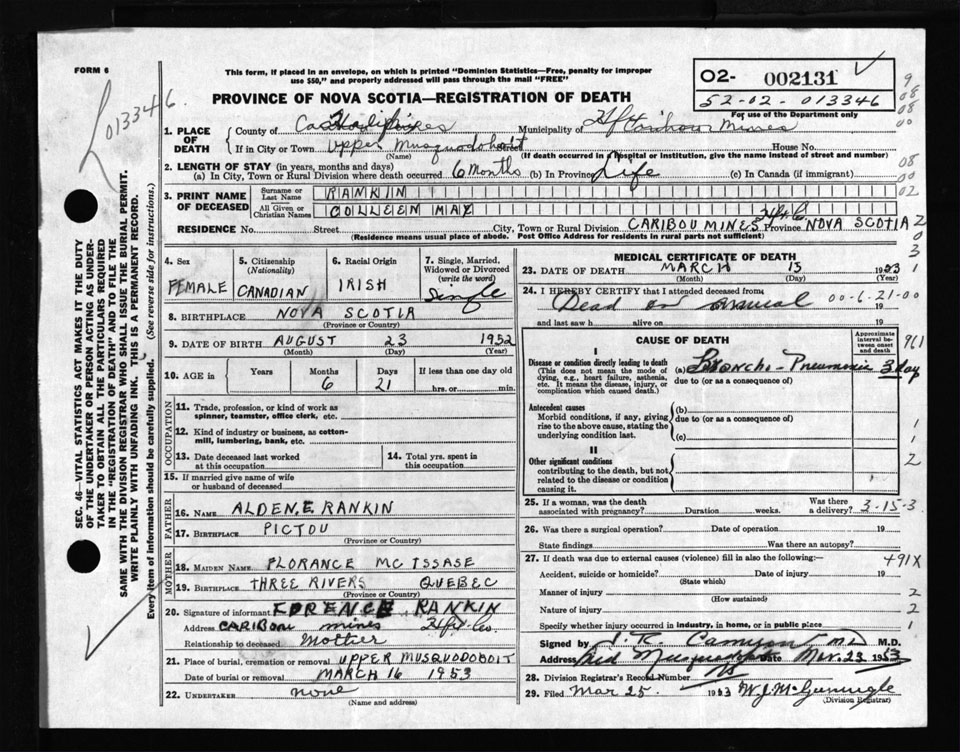 FORM 6
013346.
This form, if placed in an envelope, on which is printed "Dominion Statistics—Free, penalty for improper
use $50," and properly addressed will pass through the mail "FREE"
PROVINCE OF NOVA SCOTIA—REGISTRATION OF DEATH
02- 002131
52-02-013346
For use of the Department only
9
08
08
00
1. PLACE OF DEATH
County of Halifax
Municipality of Hfx Caribou Mines
If in City or Town Upper Musquodoboit
(Name)
House No.
(If death occurred in a hospital or institution, give the name instead of street and number)
2. LENGTH OF STAY (in years, months and days)
(a) In City, Town or Rural Division where death occurred 6 Months (b) In Province Life (c) In Canada (if immigrant)
08
00
02
3. PRINT NAME OF DECEASED
Surname or Last Name RANKIN
All Given or Christian Names COLLEEN MAY
RESIDENCE No. Street City, Town or Rural Division CARIBOU MINES Hfx Co Province NOVA SCOTIA
(Residence means usual place of abode. Post Office Address for residents in rural parts not sufficient)
2
0
3
1
4. Sex
FEMALE
5. Citizenship
(Nationality)
CANADIAN
6. Racial Origin
IRISH
7. Single, Married, Widowed or Divorced
(write the word)
Single
8. BIRTHPLACE NOVA SCOTIA
(Province or Country)
9. DATE OF BIRTH AUGUST 23 1952
(Month) (Day) (Year)
10. AGE
Years
Months 6
Days 21
If less than one day old
hrs. or min.
OCCUPATION
11. Trade, profession, or kind of work as spinner, teamster, office clerk, etc.
12. Kind of industry or business, as cotton-mill, lumbering, bank, etc.
13. Date deceased last worked at this occupation
14. Total yrs. spent in this occupation
15. If married give name of wife or husband of deceased
FATHER
16. Name ALDEN.E RANKIN
17. Birthplace PICTOU
(Province or Country)
MOTHER
18. Maiden Name FLORANCE MC ISSASE
19. Birthplace THREE RIVERS QUEBEC
(Province or Country)
20. Signature of informant RANKIN
Address CARIBOU mines Hfx Co
Relationship to deceased Mother
21. Place of burial, cremation or removal UPPER MUSQUODOBOIT
Date of burial or removal MARCH 16 1953
22. Undertaker none
(Name and address)
MEDICAL CERTIFICATE OF DEATH
23. DATE OF DEATH MARCH 15 1953
(Month) (Day)
24. I HEREBY CERTIFY that I attended deceased from:
Dead on arrival 00-6-21-00
19 19
and last saw h alive on 19
CAUSE OF DEATH
Approximate interval between onset and death
I
Disease or condition directly leading to death
(This does not mean the mode of dying, e.g., heart failure, asthenia, etc. It means the disease, injury, or complication which caused death.)
(a) Broncho-Pneumonia 3 day
due to (or as a consequence of)
961
Antecedent causes
Morbid conditions, if any, giving rise to the above cause, stating the underlying condition last.
(b)
due to (or as a consequence of)
(c)
1
1
II
Other significant conditions
contributing to the death, but not related to the disease or condition causing it.
2
25. If a woman, was the death associated with pregnancy? Duration weeks. Was there a delivery? 3-15-3
26. Was there a surgical operation? Date of operation 19
State findings Was there an autopsy?
27. If death was due to external causes (violence) fill in also the following:— 491X
Accident, suicide or homicide? Date of injury 19
(State which)
Manner of injury 2
(How sustained)
Nature of injury 2
Specify whether injury occurred in industry, in home, or in public place 1
Signed by M.D.
Address Mid Musquodoboit Date Mar. 23 1953
28. Division Registrar's Record Number
29. Filed Mar 25. 1953
(Division Registrar)
SEC. 46—VITAL STATISTICS ACT MAKES IT THE DUTY
OF THE UNDERTAKER OR PERSON ACTING AS UNDER-
TAKER TO OBTAIN ALL THE PARTICULARS REQUIRED
IN THE "REGISTRATION OF DEATH" AND TO FILE THE
SAME WITH THE DIVISION REGISTRAR WHO SHALL ISSUE THE BURIAL PERMIT.
WRITE PLAINLY WITH UNFADING INK. THIS IS A PERMANENT RECORD.
Every item of information should be carefully supplied. (See reverse side for instructions.)